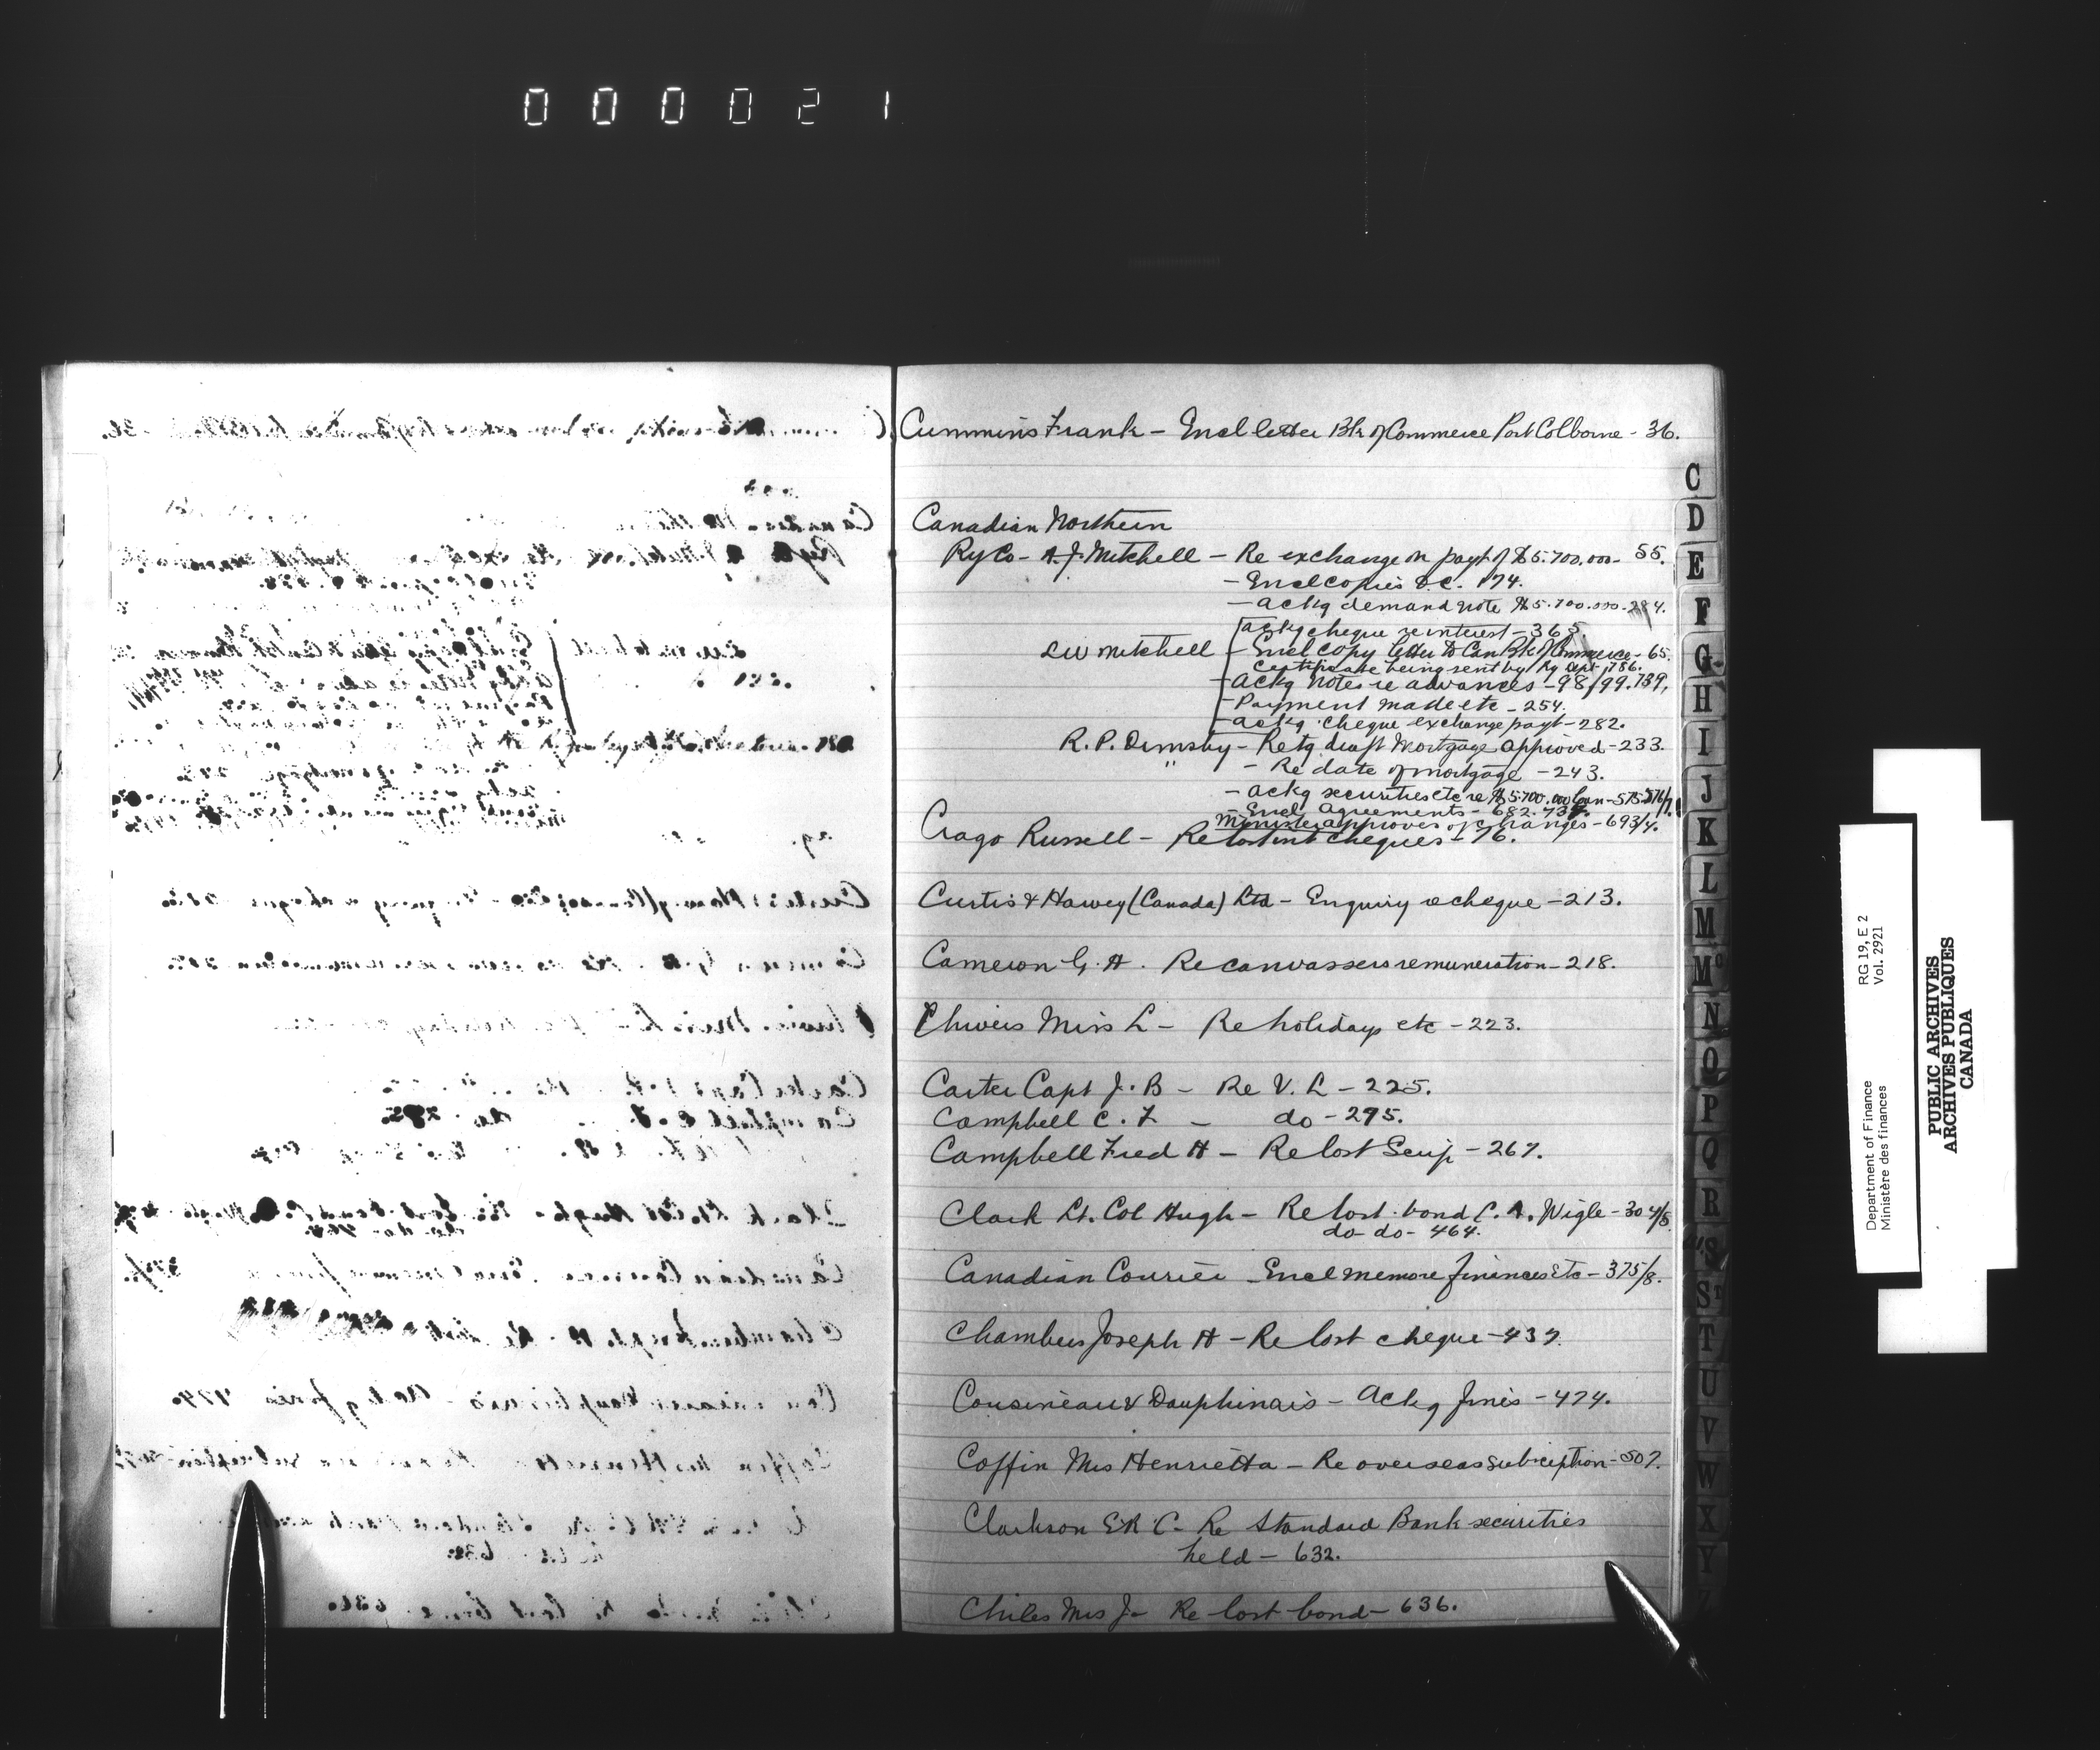 000021
Cummins Frank - Encl letter Bk of Commerce Port Colborne - 36.
Canadian Northern
Ry Co - A. J. Mitchell - Re exchange on payt of $5.700.000 - 55.
- Encl copies O.C. 174.
- ackg demand note $5.700.000 - 284.
ackg cheque re interest - 365
LW Mitchell - Encl copy letter to Can Bk of Commerce - 65.
Certificate being sent by Ry Dept, 786.
- Ackg notes re advances - 98/99. 739,
- Payment made etc - 254.
- ackg cheque exchange payt - 282.
R. P. Ormsby - Retg draft Mortgage approved - 233.
" - Re date of mortgage - 243.
- ackg securities etc re $5.700.000 loan - 575.576/7.
- Encl agreements - 682.
Minister approves of changes - 693/4.
Crago Russell - Re lost int cheques - 76.
Curtis & Harvey (Canada) Ltd - Enquiry re cheque - 213.
Cameron G. H. Re canvassers remuneration - 218.
Chivers Miss L - Re holidays etc - 223.
Carter Capt J. B - Re V. L - 225.
Campbell C. F - do - 295.
Campbell Fred H - Re lost Scrip - 267.
Clark Lt. Col Hugh - Re lost bond C. A. Wigle - 304/5
do do - 464.
Canadian Courier - Encl memo re finances etc - 375/8.
Chambers Joseph H - Re lost cheque - 437.
Cousineau & Dauphinais - Ackg fines - 474.
Coffin Mrs Henrietta - Re overseas subscription - 507.
Clarkson E R C - Re Standard Bank securities
held - 632.
Chiles Mrs J - Re lost bond - 636.
C
D
E
F
G
H
I
J
K
L
M
Mc
N
O
P
Q
R
S
St
T
U
V
W
X
Y
Z
Department of Finance RG 19, E 2
Ministère des finances Vol. 2921
PUBLIC ARCHIVES
ARCHIVES PUBLIQUES
CANADA